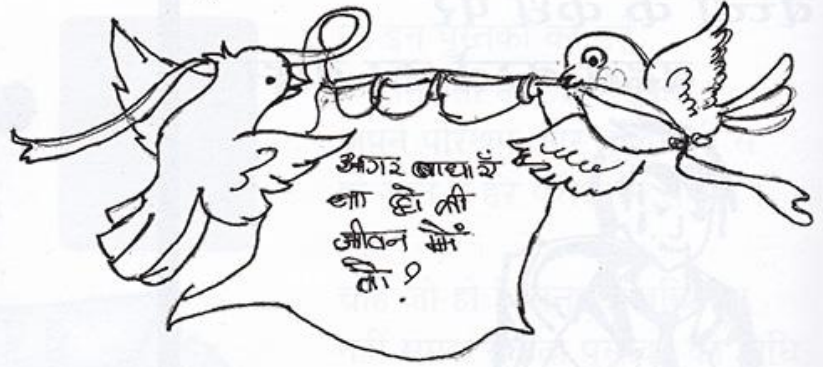 अगर बाधाएँ
ना हो ती
जीवन में
तो?